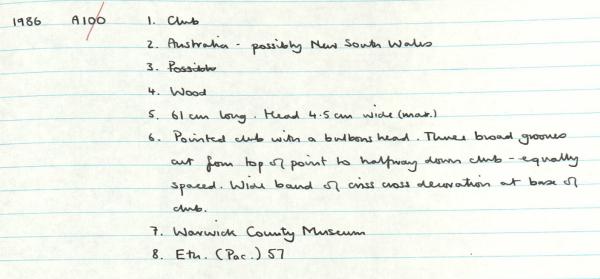 1986 A100 1. Club
2. Australia - possibly New South Wales
3. Possible
4. Wood
5. 61 cm long. Head 4.5 cm wide (max.)
6. Pointed club with a bulbous head. Three broad grooves
cut from top of point to halfway down club - equally
spaced. Wide band of criss cross decoration at base of
club.
7. Warwick County Museum
8. Eth. (Pac.) 57